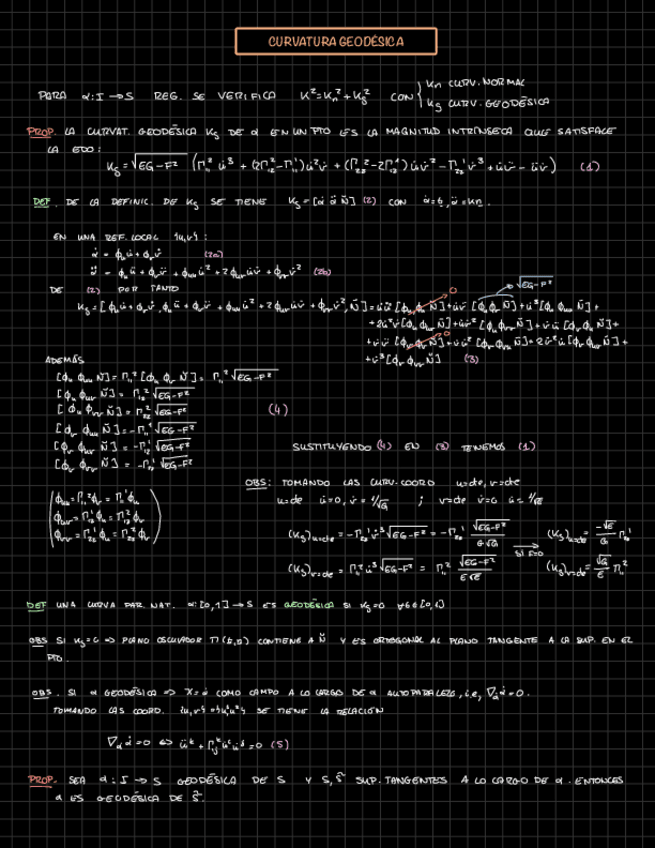 CURVATURA GEODÉSICA
PARA α: I → S REG. SE VERIFICA K²=Kn²+Kg² CON { Kn CURV. NORMAL
Kg CURV. GEODÉSICA
PROP. LA CURVAT. GEODÉSICA Kg DE α EN UN PTO ES LA MAGNITUD INTRÍNSECA QUE SATISFACE
LA EDO:
Kg = √EG-F² (Γ₁₁² u̇³ + (2Γ₁₂²-Γ₁₁¹)u̇²v̇ + (Γ₂₂²-2Γ₁₂¹)u̇v̇² - Γ₂₂¹v̇³ + u̇v̈ - üv̇) (1)
DEF. DE LA DEFINIC. DE Kg SE TIENE Kg = [α̇ α̈ N̄] (2) CON
EN UNA REF. LOCAL {u,v}:
α̇ = ϕᵤu̇ + ϕᵥv̇ (2a)
α̈ = ϕᵤü + ϕᵥv̈ + ϕᵤᵤu̇² + 2ϕᵤᵥu̇v̇ + ϕᵥᵥv̇² (2b)
DE (2) POR TANTO
√EG-F²
Kg = [ϕᵤu̇ + ϕᵥv̇, ϕᵤü + ϕᵥv̈ + ϕᵤᵤu̇² + 2ϕᵤᵥu̇v̇ + ϕᵥᵥv̇², N̄] = u̇ü [ϕᵤϕᵤN̄] + u̇v̈ [ϕᵤϕᵥN̄] + u̇³[ϕᵤϕᵤᵤN̄] +
+ 2u̇²v̇[ϕᵤϕᵤᵥN̄] + u̇v̇²[ϕᵤϕᵥᵥN̄] + v̇ü[ϕᵥϕᵤN̄] +
+ v̇v̈ [ϕᵥϕᵥN̄] + v̇u̇² [ϕᵥϕᵤᵤN̄] + 2v̇²u̇[ϕᵥϕᵤᵥN̄] +
+ v̇³[ϕᵥϕᵥᵥN̄] (3)
ADEMÁS
[ϕᵤ ϕᵤᵤ N̄] = Γ₁₁² [ϕᵤ ϕᵥ N̄] = Γ₁₁² √EG-F²
[ϕᵤ ϕᵤᵥ N̄] = Γ₁₂² √EG-F²
[ϕᵤ ϕᵥᵥ N̄] = Γ₂₂² √EG-F² (4)
[ϕᵥ ϕᵤᵤ N̄] = -Γ₁₁¹ √EG-F²
[ϕᵥ ϕᵤᵥ N̄] = -Γ₁₂¹ √EG-F²
[ϕᵥ ϕᵥᵥ N̄] = -Γ₂₂¹ √EG-F²
SUSTITUYENDO (4) EN (3) TENEMOS (1)
OBS: TOMANDO LAS CURV. COORD u=cte, v=cte
u=cte u̇=0, v̇=1/√G ; v=cte v̇=0 u̇=1/√E
(Kg)u=cte = -Γ₂₂¹ v̇³ √EG-F² = -Γ₂₂¹ √EG-F² / G√G → SI F=0 (Kg)u=cte = -√E/G Γ₂₂¹
(Kg)v=cte = Γ₁₁² u̇³ √EG-F² = Γ₁₁² √EG-F² / E√E (Kg)v=cte = √G/E Γ₁₁²
DEF UNA CURVA PAR. NAT. α: [0,1] → S ES GEODÉSICA SI Kg=0
OBS SI Kg=0 => PLANO OSCULADOR Π(t,n) CONTIENE A N̄ Y ES ORTOGONAL AL PLANO TANGENTE A LA SUP. EN EL
PTO.
OBS. SI α GEODÉSICA => X=α̇ COMO CAMPO A LO LARGO DE α AUTOPARALELO, i.e, ∇α̇ α̇=0.
TOMANDO LAS COORD. {u,v} SE TIENE LA RELACIÓN
∇α̇ α̇=0 <=> üᵏ + Γᵢⱼᵏ u̇ⁱu̇ʲ=0 (5)
PROP. SEA α: I → S GEODÉSICA DE S Y S, S̃ SUP. TANGENTES A LO LARGO DE α. ENTONCES
α ES GEODÉSICA DE S̃.